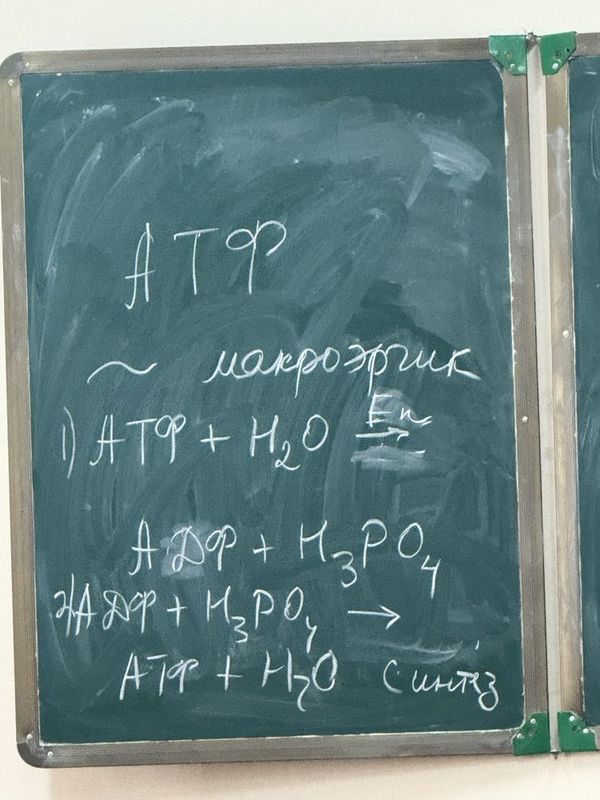 АТФ
~ макроэргик
1) АТФ + H₂O →
En
АДФ + H₃PO₄
2) АДФ + H₃PO₄ →
АТФ + H₂O синтез